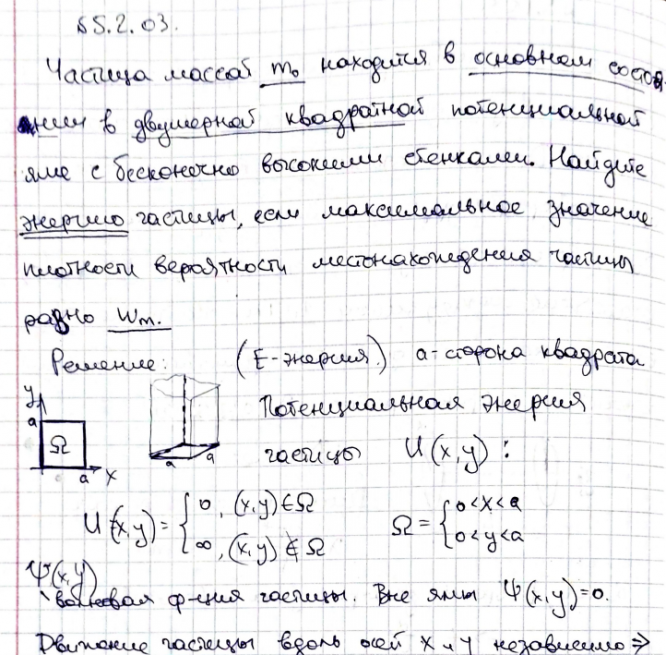 §5.2.03.
Частица массой m₀ находится в основном состоя-
нии в двумерной квадратной потенциальной
яме с бесконечно высокими стенками. Найдите
энергию частицы, если максимальное значение
плотности вероятности местонахождения частицы
равно wₘ.
Решение: (E-энергия) a-сторона квадрата
y a Ω a x
a a
Потенциальная энергия
частицы U(x,y):
U(x,y) = { 0, (x,y) ∈ Ω
∞, (x,y) ∉ Ω
Ω = { 0<x<a
0<y<a
Ψ(x,y)
волновая ф-ция частицы. Вне ямы Ψ(x,y)=0.
Движение частицы вдоль осей x и y независимо ⇒